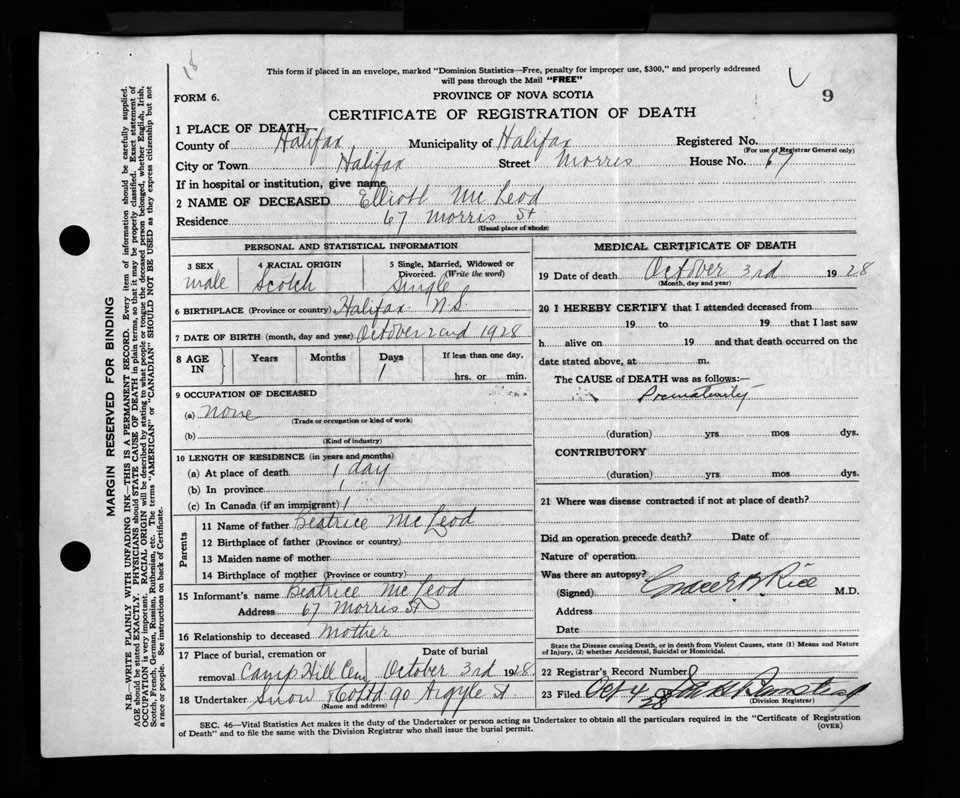 18
This form if placed in an envelope, marked "Dominion Statistics—Free, penalty for improper use, $300," and properly addressed
will pass through the Mail "FREE"
FORM 6.
PROVINCE OF NOVA SCOTIA
9
CERTIFICATE OF REGISTRATION OF DEATH
1 PLACE OF DEATH—
County of Halifax Municipality of Halifax Registered No.
(For use of Registrar General only)
City or Town Halifax Street Morris House No. 67
If in hospital or institution, give name
2 NAME OF DECEASED Elliott McLeod
Residence 67 Morris St
(Usual place of abode)
PERSONAL AND STATISTICAL INFORMATION
3 SEX
male
4 RACIAL ORIGIN
Scotch
5 Single, Married, Widowed or
Divorced. (Write the word)
Single
6 BIRTHPLACE (Province or country) Halifax N.S.
7 DATE OF BIRTH (month, day and year) October 2nd 1928
8 AGE IN
Years Months Days If less than one day,
1 hrs. or min.
9 OCCUPATION OF DECEASED
(a) None
(Trade or occupation or kind of work)
(b)
(Kind of industry)
10 LENGTH OF RESIDENCE (in years and months)
(a) At place of death 1 day
(b) In province 1
(c) In Canada (if an immigrant) 1
Parents
11 Name of father Beatrice McLeod
12 Birthplace of father (Province or country)
13 Maiden name of mother
14 Birthplace of mother (Province or country)
15 Informant's name Beatrice McLeod
Address 67 Morris St
16 Relationship to deceased Mother
17 Place of burial, cremation or Date of burial
removal Camp Hill Cem October 3rd 1928
18 Undertaker Snow & Co Ltd 90 Argyle St
(Name and address)
MEDICAL CERTIFICATE OF DEATH
19 Date of death October 3rd 1928
(Month, day and year)
20 I HEREBY CERTIFY that I attended deceased from
19 to 19 that I last saw
h alive on 19 and that death occurred on the
date stated above, at m.
The CAUSE of DEATH was as follows:—
Prematurity
(duration) yrs mos dys.
CONTRIBUTORY
(duration) yrs mos dys.
21 Where was disease contracted if not at place of death?
Did an operation precede death? Date of
Nature of operation
Was there an autopsy?
(Signed) Grace Rice M.D.
Address
Date
State the Disease causing Death, or in death from Violent Causes, state (1) Means and Nature
of Injury, (2) whether Accidental, Suicidal or Homicidal.
22 Registrar's Record Number
23 Filed Oct 4 28
(Division Registrar)
SEC. 46—Vital Statistics Act makes it the duty of the Undertaker or person acting as Undertaker to obtain all the particulars required in the "Certificate of Registration
of Death" and to file the same with the Division Registrar who shall issue the burial permit.
(OVER)
MARGIN RESERVED FOR BINDING
N.B.—WRITE PLAINLY WITH UNFADING INK—THIS IS A PERMANENT RECORD. Every item of information should be carefully supplied.
AGE should be stated EXACTLY. PHYSICIANS should STATE CAUSE OF DEATH in plain terms, so that it may be properly classified. Exact statement of
OCCUPATION is very important. RACIAL ORIGIN will be described by stating to what people or tongue the deceased person belonged, whether English, Irish,
Scotch, French, German, Russian, Ruthenian, etc. The terms "AMERICAN" or "CANADIAN" SHOULD NOT BE USED as they express citizenship but not
a race or people. See instructions on back of Certificate.